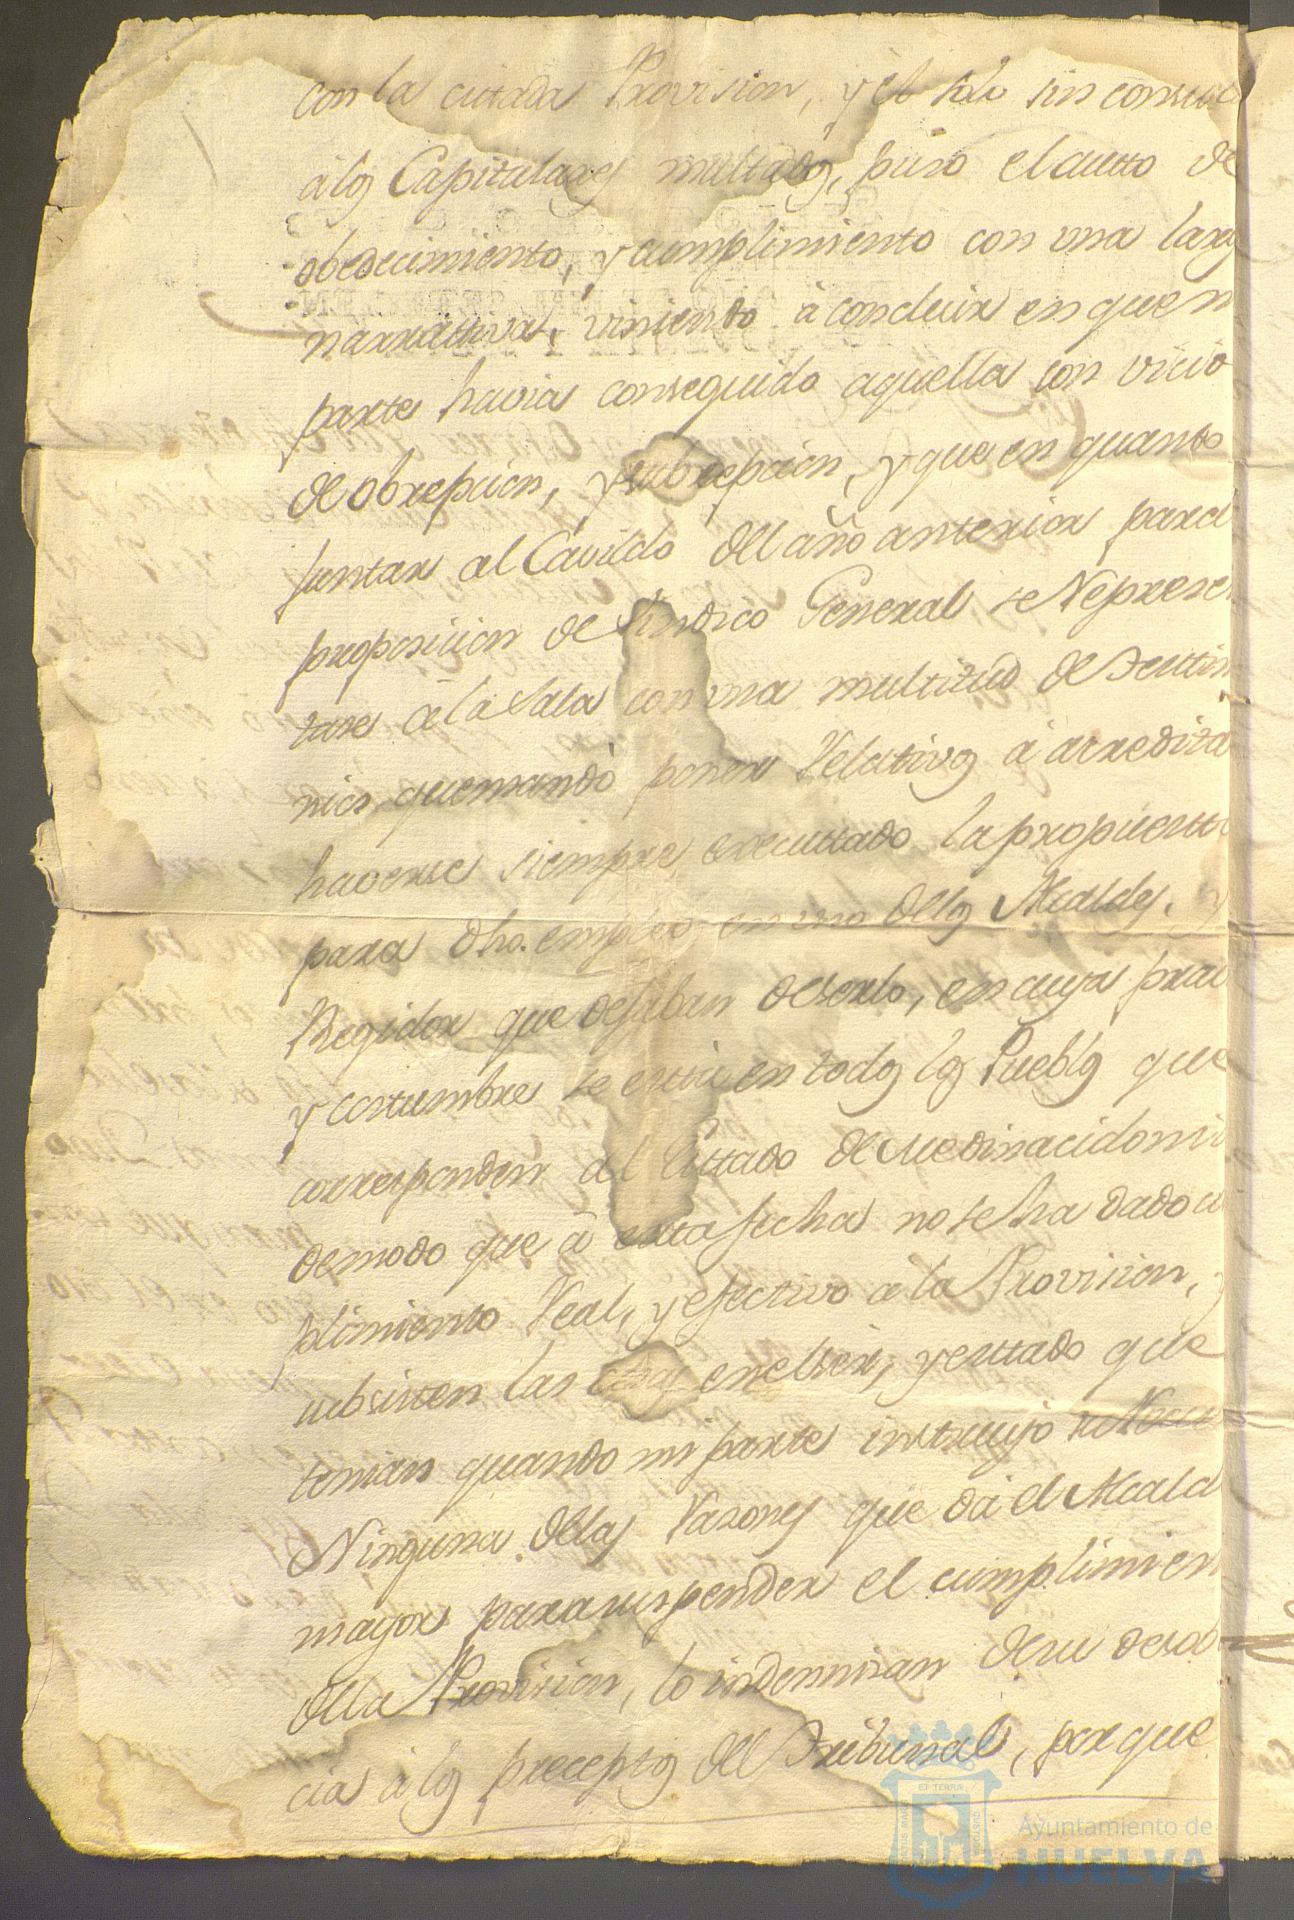 con la citada Provision, y el solo sin consul
â los Capitulares multados, puso el auto de
obedecimiento, y cumplimiento con vna larg
narrativa, viniendo â concluir en que m
parte havia conseguido aquella con vicio
de obrepcion, y subrepcion, y que en quanto
juntar al Cavildo del año anterior para l
proposicion de Sindico General se Represe
tase â la Sala con vna multitud de Testim
nios, que mandô poner Relativos â acredita
haverse siempre executtado la propuesta
para dho. empleo en vno delos Alcaldes, y
Regidor que dejaban deserlo, en cuya prac
y costumbre se està en todos los Pueblos que
corresponden al Estado de Medinacidoni
de modo que â esta fecha no se ha dado cu
plimiento Real, y efectivo a la Provision, y
subsisten las cosas en el ser, y estado que
tenian quando mi parte instruyò su Recur
Ninguna delas Razones que dà el Alcald
mayor para suspender el cumplimien
dela Provision, lo indemnisan de su desob
cia â los preceptos del Tribunal, porque
EI TERRA
Ayuntamiento de
HUELVA